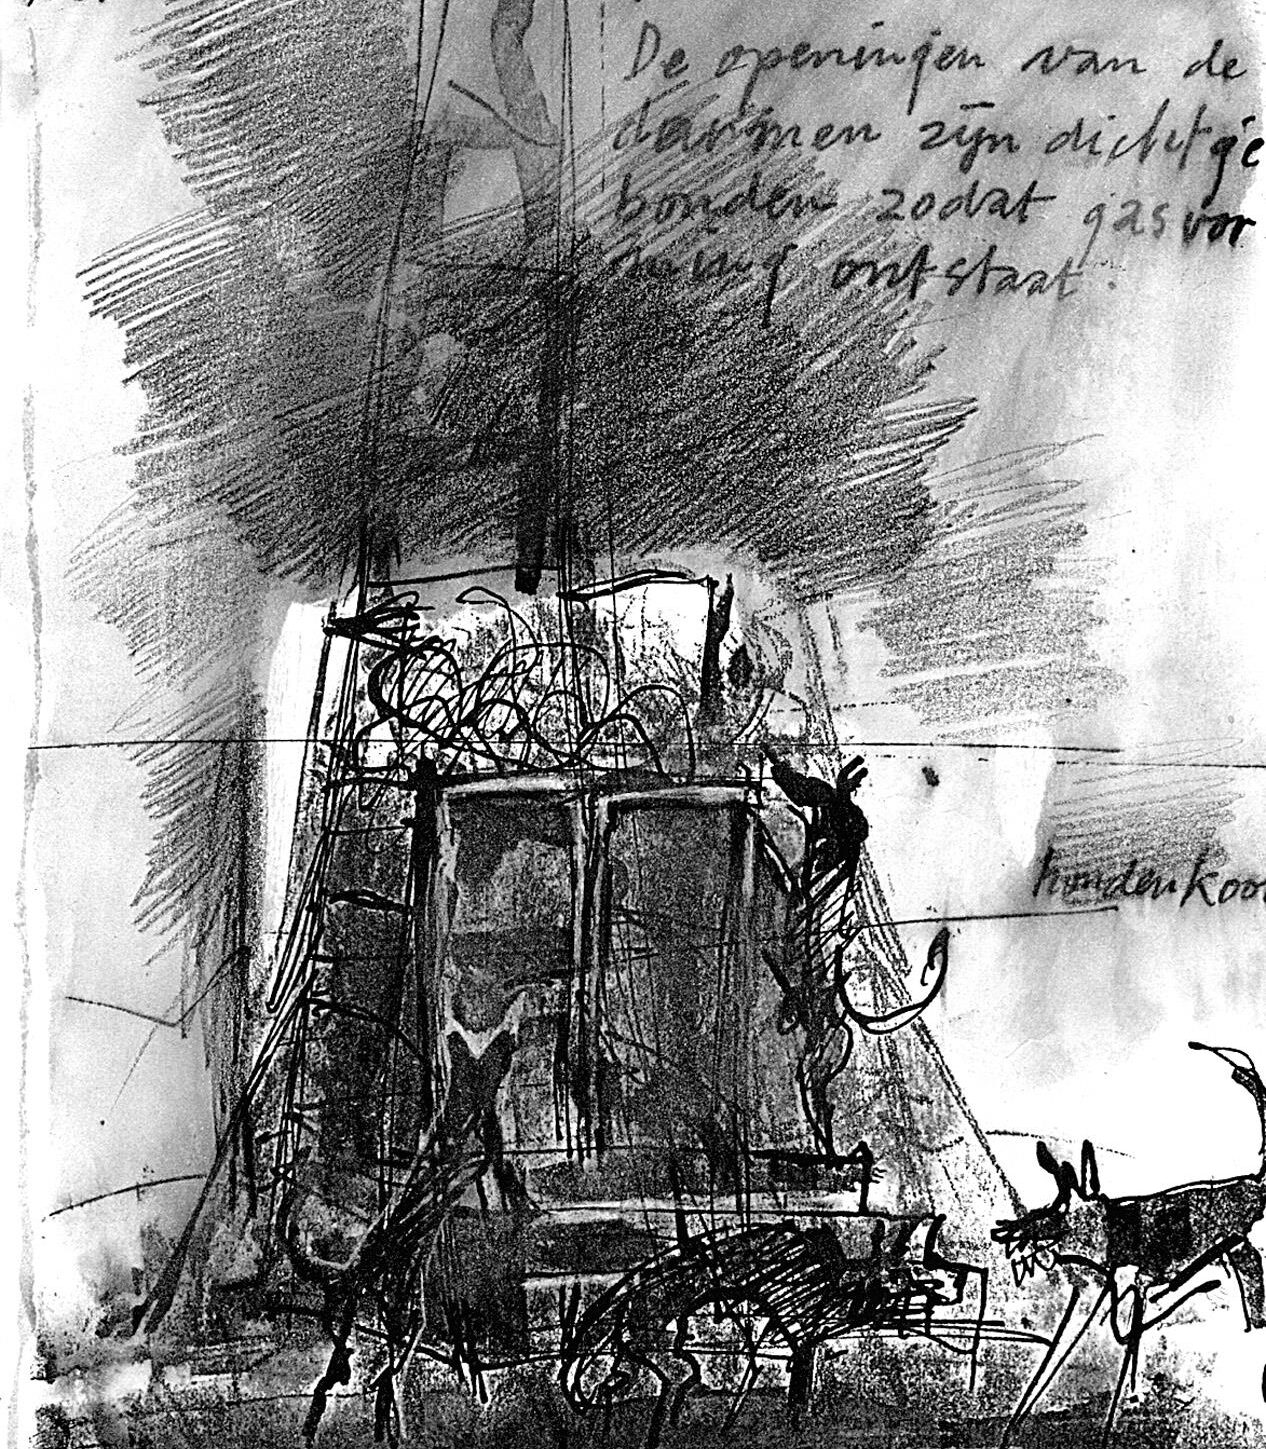 De openingen van de
darmen zijn dichtge
bonden zodat gasvor
ming ontstaat.
hondenkoor